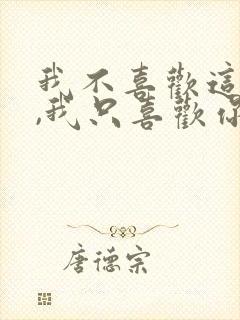 我不喜歡這
,我只喜歡你
唐德宗